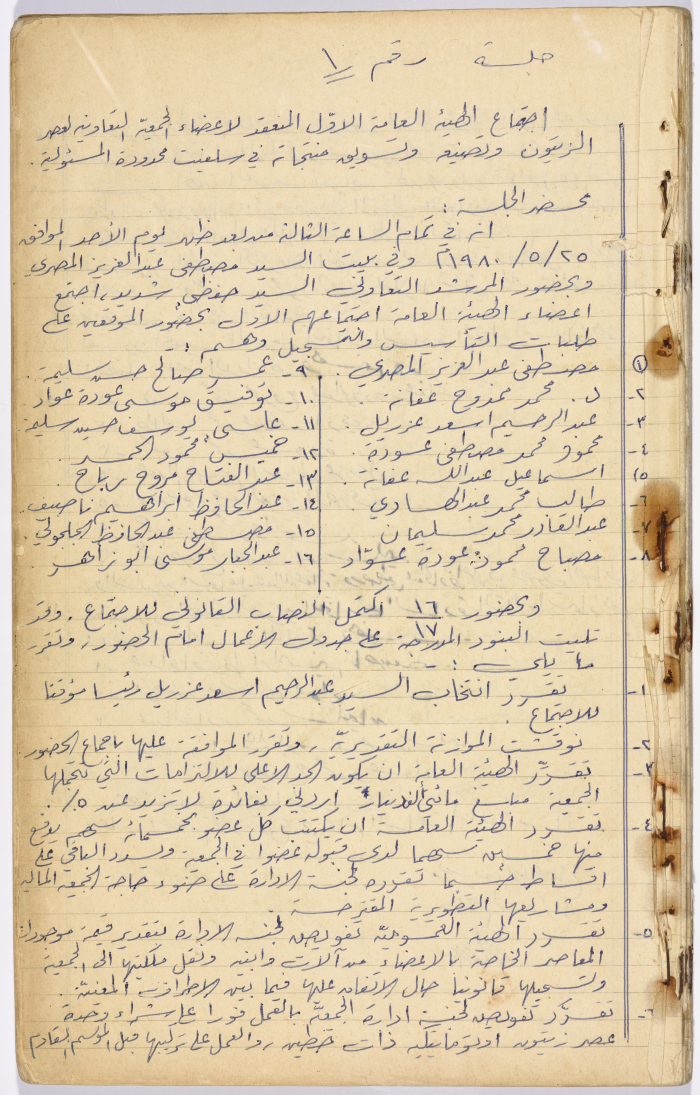 جلسة رقم ١
اجتماع الهيئة العامة الاول المنعقد لاعضاء الجمعية التعاونية لعصر
الزيتون وتصنيعه وتسويق منتجاته في سلفيت محدودة المسئولية .
محضر الجلسة :
انه في تمام الساعة الثالثة من بعد ظهر يوم الأحد الموافق
٢٥ / ٥ / ١٩٨٠م وفي بيت السيد مصطفى عبد العزيز المصري
وبحضور المرشد التعاوني السيد حفظي شديد، اجتمع
اعضاء الهيئة العامة اجتماعهم الاول بحضور الموقعين على
طلبات التأسيس والتسجيل وهم :-
١ مصطفى عبد العزيز المصري . ٩- عمر صالح حسن سليمة .
٢- د. محمد ممدوح عفانة . ١٠- توفيق موسى عودة عواد
٣- عبد الرحيم اسعد عزريل . ١١- يوسف حسين سليمة
٤- محمود محمد مصطفى عودة . ١٢- خميس محمود الحمد .
٥) اسماعيل عبدالله عفانة . ١٣- عبد الفتاح مروح رباح .
٦- طالب محمد عبد الهادي . ١٤- عبد الحافظ ابراهيم
٧- عبد القادر محمد سليمان ١٥- مصطفى عبد الحافظ
٨- مصباح محمود عودة عواد ١٦- عبد الجبار موسى ابو
وبحضور ١٦/١٧ اكتمل النصاب القانوني للاجتماع . وقد
تليت البنود المدرجة على جدول الاعمال امام الحضور ، وتقرر
ما يلي :-
١- تقرر انتخاب السيد عبد الرحيم اسعد عزريل رئيسا مؤقتا
للاجتماع .
٢- نوقشت الموازنة التقديرية ، وتقرر الموافقة عليها باجماع الحضور .
٣- تقرر الهيئة العامة ان يكون الحد الاعلى للالتزامات التي تتحملها
الجمعية مبلغ اردني بفائدة لا تزيد عن ٥٪ .
٤- تقرر الهيئة العامة ان يكتتب كل عضو بخمسمائة سهم يدفع
منها خمسين سهما لدى قبوله عضوا في الجمعية ويسدد الباقي على
اقساط حسبما تقرره لجنة الادارة على ضوء حاجة الجمعية المالية
ومشاريعها التطويرية المقترحة .
٥- تقرر الهيئة العمومية تفويض لجنة الادارة بتقدير قيمة موجودات
المعاصر الخاصة بالاعضاء من آلات وابنية ونقل ملكيتها الى الجمعية
وتسجيلها قانونيا حال الاتفاق عليها فيما بين الاطراف المعنية .
٦- تقرر تفويض لجنة ادارة الجمعية بالعمل فورا على شراء وحدة
عصر زيتون اوتوماتيكية ذات خطين ، والعمل على تركيبها قبل الموسم القادم